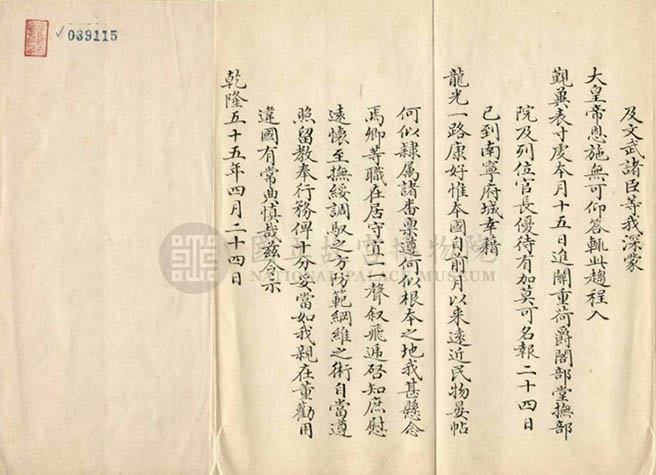 及文武諸臣等我深蒙
大皇帝恩施無可仰答輒此趲程入
覲兼表寸虔本月十五日進關重荷爵閣部堂撫部
院及列位官長優待有加莫可名報二十四日
已到南寧府城幸藉
龍光一路康好惟本國自前月以來遠近民物晏帖
何似隸属諸番稟遵何似根本之地我甚懸念
焉卿等職在居守宜一一聲叙飛遞啓知庶慰
遠懷至撫綏調馭之方防範綱維之術自當遵
照留教奉行務俾十分妥當如我親在董勸用
違國有常典慎哉兹令示
乾隆五十五年四月二十四日
039115
國立故宮博物院
NATIONAL PALACE MUSEUM